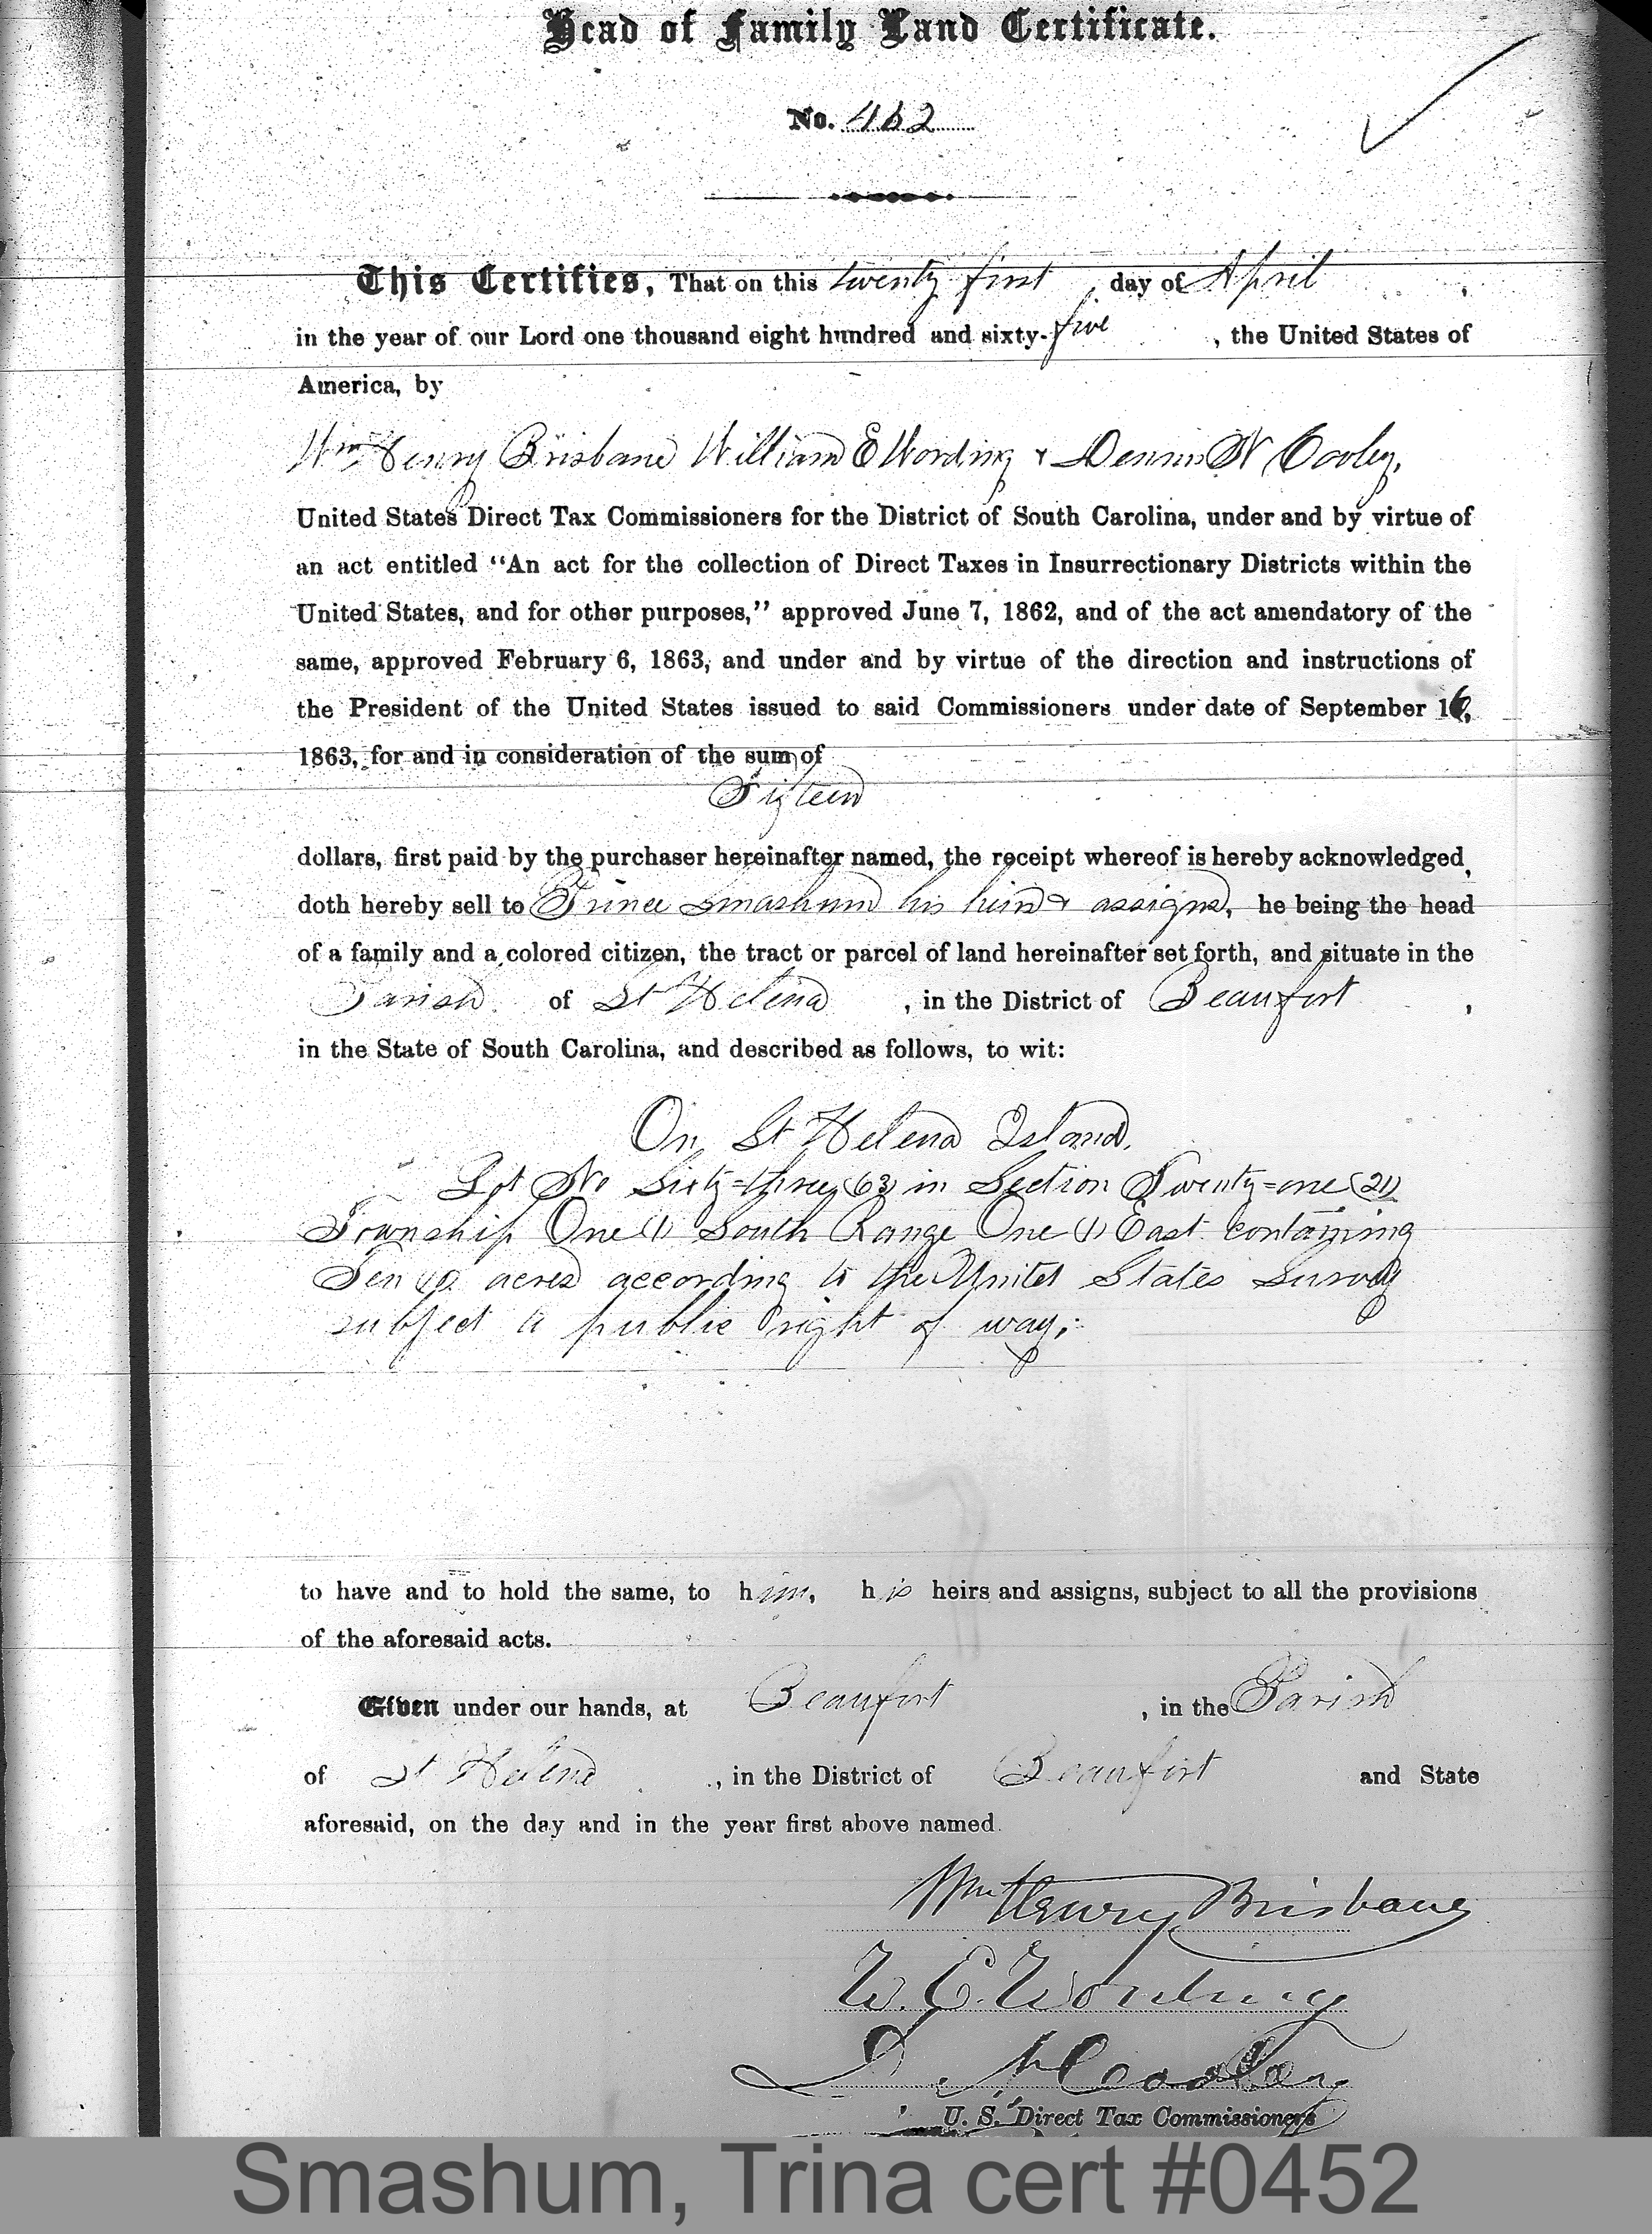 Head of Family Land Certificate.
No. 462
This Certifies, That on this twenty first day of April,
in the year of our Lord one thousand eight hundred and sixty-five, the United States of
America, by
Wm Henry Brisbane William E Wording & Dennis N Cooley,
United States Direct Tax Commissioners for the District of South Carolina, under and by virtue of
an act entitled "An act for the collection of Direct Taxes in Insurrectionary Districts within the
United States, and for other purposes," approved June 7, 1862, and of the act amendatory of the
same, approved February 6, 1863, and under and by virtue of the direction and instructions of
the President of the United States issued to said Commissioners under date of September 16,
1863, for and in consideration of the sum of
Fifteen
dollars, first paid by the purchaser hereinafter named, the receipt whereof is hereby acknowledged,
doth hereby sell to Smashum his heirs & assigns, he being the head
of a family and a colored citizen, the tract or parcel of land hereinafter set forth, and situate in the
Parish of St Helena, in the District of Beaufort,
in the State of South Carolina, and described as follows, to wit:
On St Helena Island.
Lot No Sixty=three (63) in Section Twenty=one (21)
Township One (1) South Range One (1) East containing
Ten (10) acres according to the United States Survey
subject to public right of way.
to have and to hold the same, to him, his heirs and assigns, subject to all the provisions
of the aforesaid acts.
Given under our hands, at Beaufort, in the Parish
of St Helena, in the District of Beaufort and State
aforesaid, on the day and in the year first above named.
Wm Henry Brisbane
W. E. Wording
D. N. Cooley
U. S. Direct Tax Commissioners
Smashum, Trina cert #0452